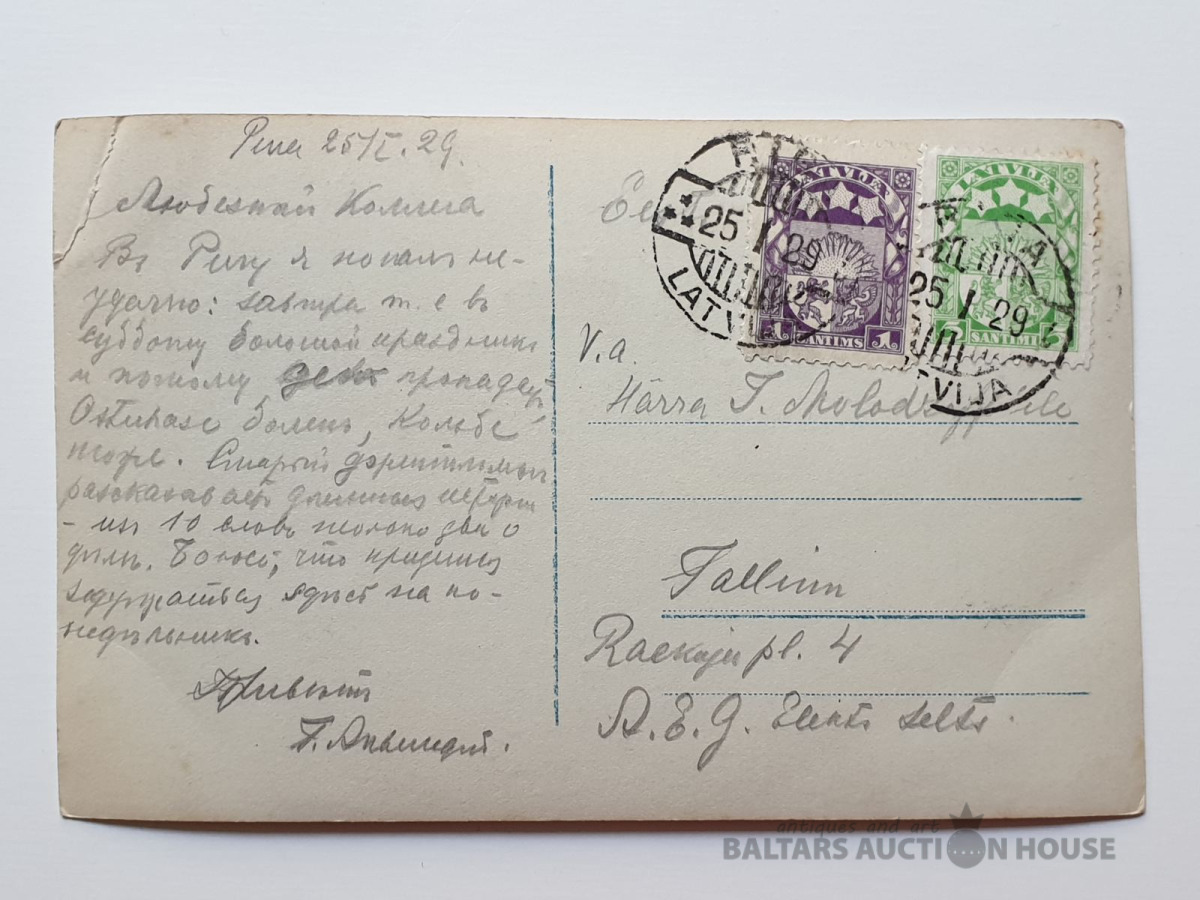 Рига 25/I.29.
Любезный Коллега
Въ Ригу я попалъ не-
удачно: завтра т. е въ
субботу большой праздникъ
и потому день пропадетъ,
боленъ, Кольбе
тоже. Старый
разсказываетъ длинныя
- изъ 10 словъ только два о
дѣлѣ. Боюсь, что придется
задержаться здѣсь на по-
недѣльникъ.
Привѣтъ
Г.
V. a.
Härra J.
Tallinn
Raekoja pl. 4
A. E. G. Elektr. selts.
RIGA
25 I 29
LATVIJA
LATVIJA
1 SANTIMS 1
RIGA
25 I 29
LATVIJA
LATVIJA
5 SANTIMI 5
antiques and art
BALTARS AUCTION HOUSE